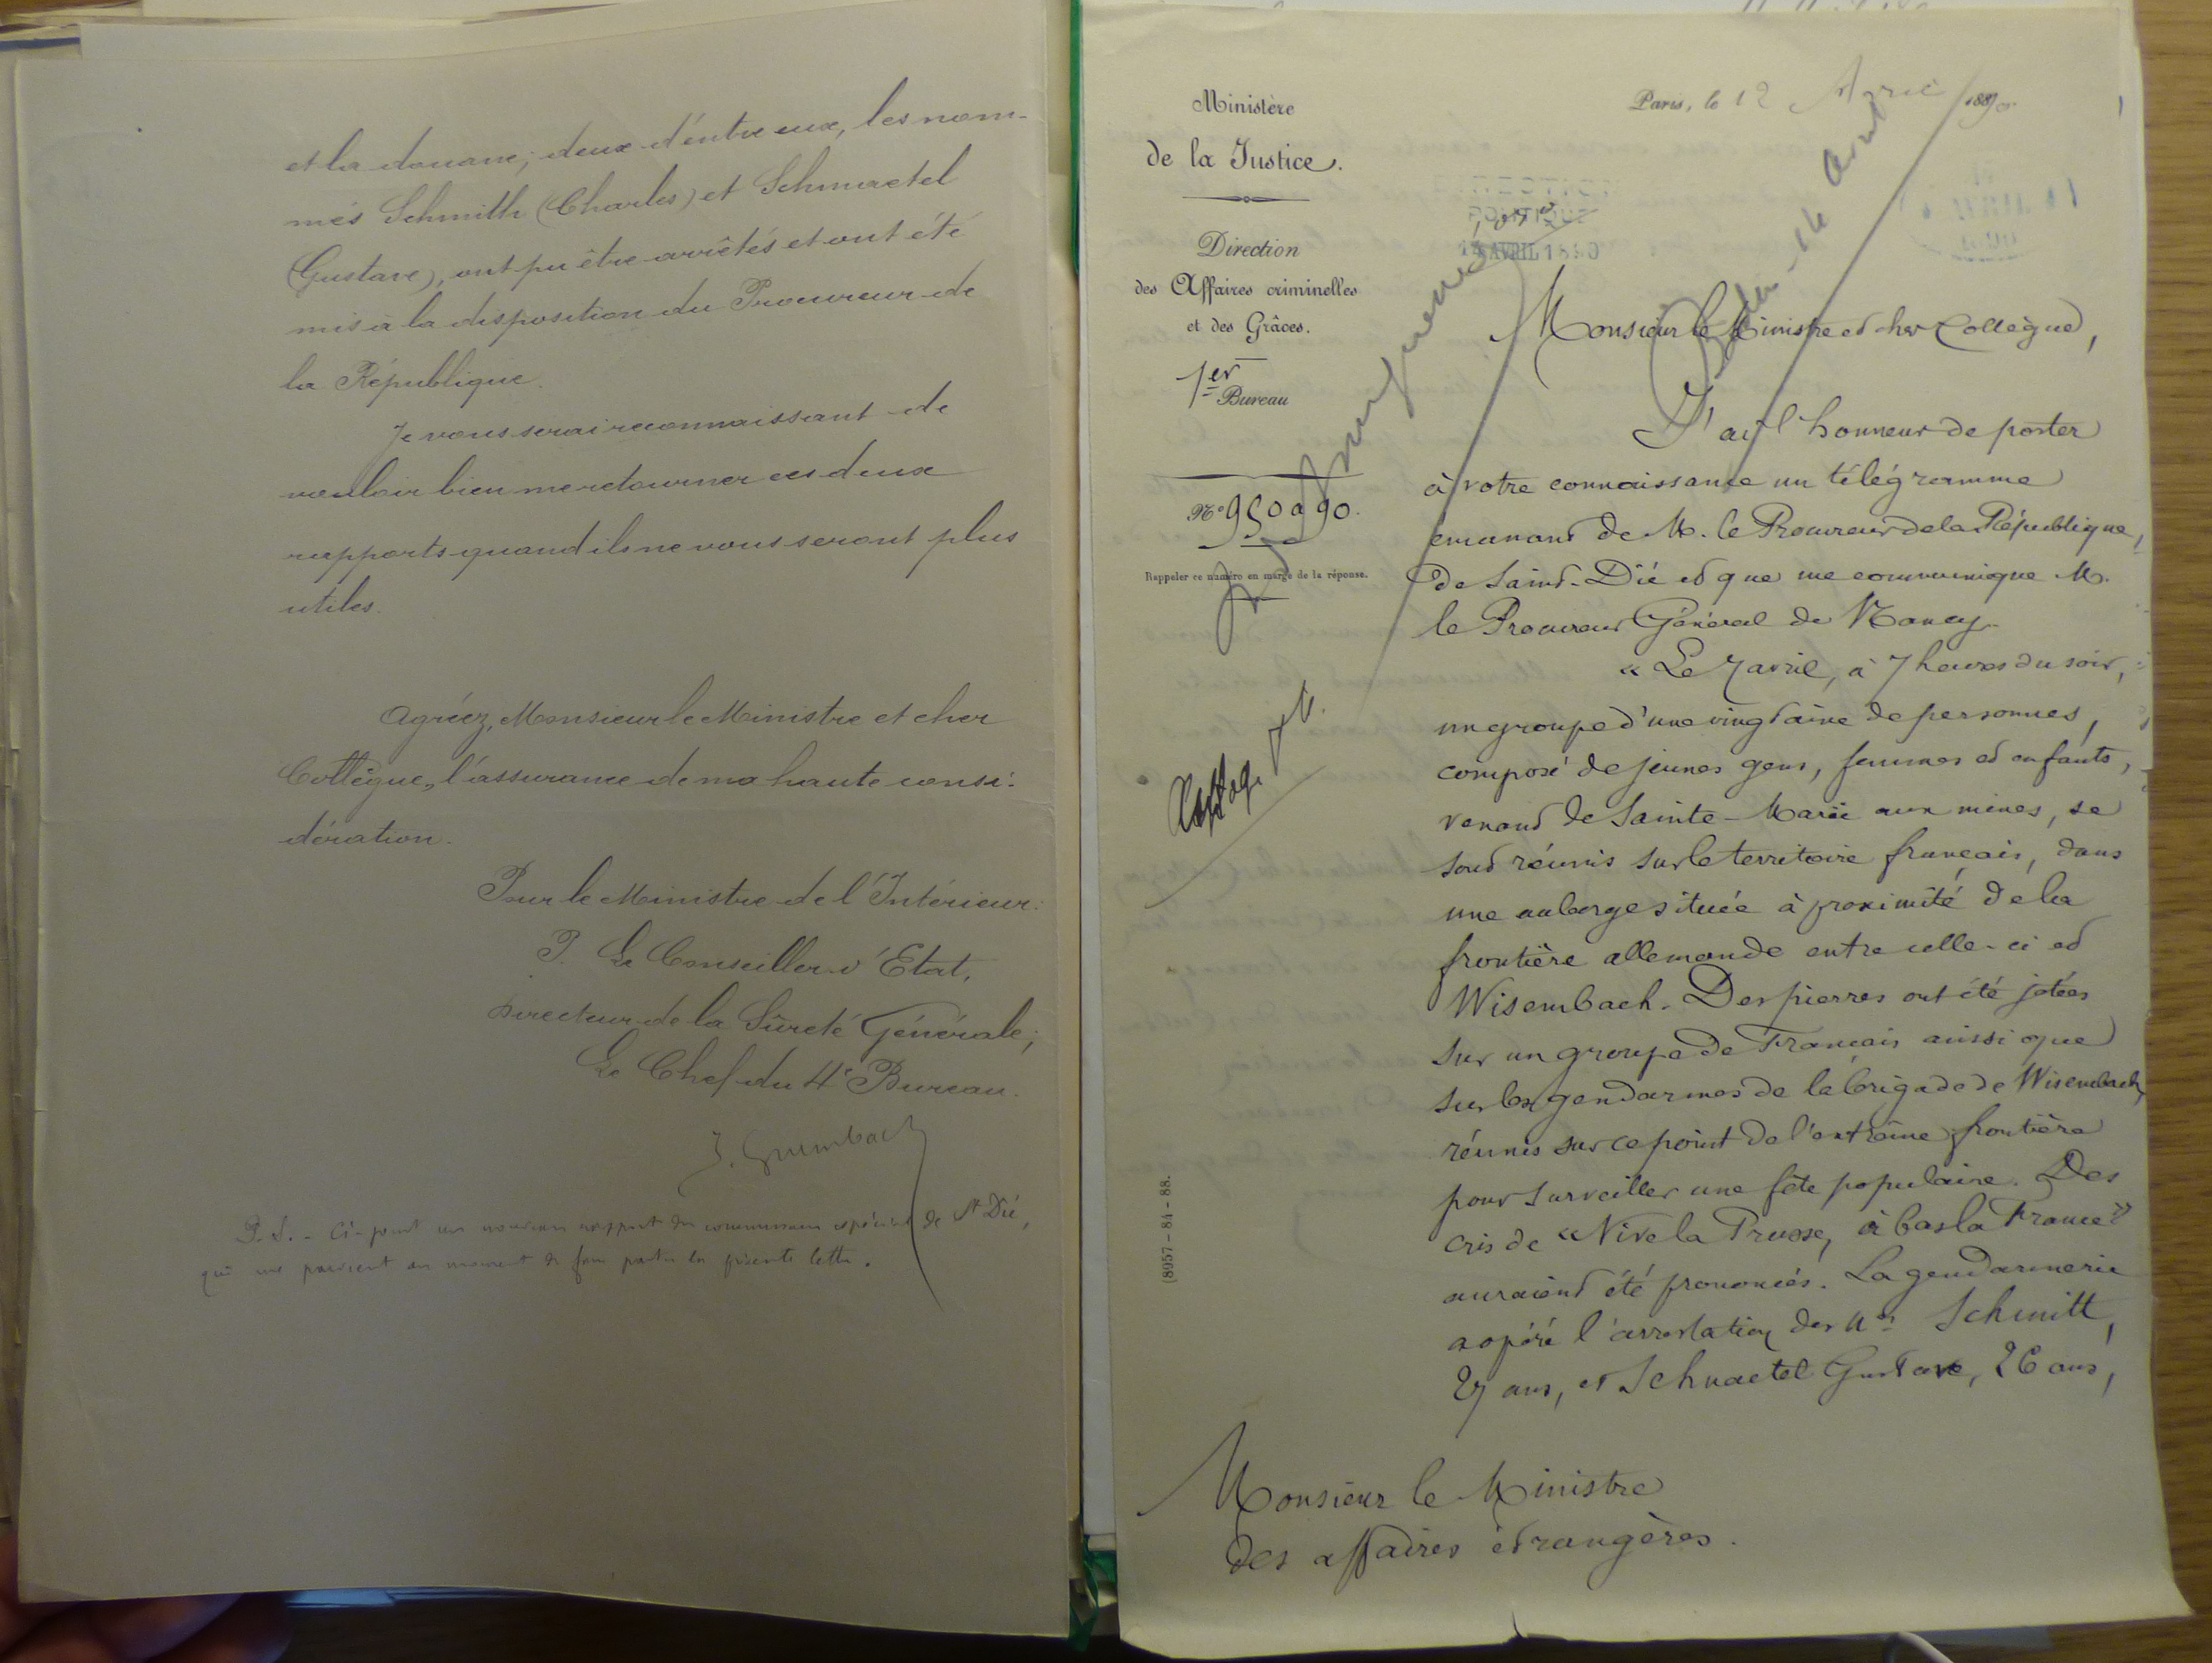 et la douane; deux d'entre eux, les nom-
més Schmith (Charles) et Schmaetel
(Gustave), ont pu être arrêtés et ont été
mis à la disposition du Procureur de
la République.
Je vous serai reconnaissant de
vouloir bien me retourner ces deux
rapports quand ils ne vous seront plus
utiles.
Agréez, Monsieur le Ministre et cher
Collègue, l'assurance de ma haute consi-
dération.
Pour le Ministre de l'Intérieur:
P. Le Conseiller d'Etat,
Directeur de la Sûreté Générale;
Le Chef du 4e Bureau.
J. Grumbach
P.S. - Ci-joint un nouveau rapport du commissaire spécial de St Dié,
qui me parvient au moment de faire partir la présente lettre.
Ministère
de la Justice.
Direction
des Affaires criminelles
et des Grâces.
1er Bureau
No 950 a 90.
Rappeler ce numéro en marge de la réponse.
(8957-84-88.
Paris, le 12 Avril 1890
DIRECTION
POLITIQUE
14 AVRIL 1890
AVRIL
Monsieur le Ministre et cher Collègue,
J'ai l'honneur de porter
à votre connaissance un télégramme
emanant de M. le Procureur de la République,
de Saint-Dié et que me communique M.
le Procureur Général de Nancy.
« Le 7 avril, à 7 heures du soir,
un groupe d'une vingtaine de personnes,
composé de jeunes gens, femmes et enfants,
venant de Sainte-Marie aux mines, se
sont réunis sur le territoire français, dans
une auberge située à proximité de la
frontière allemande entre celle-ci et
Wisembach. Des pierres ont été jetées
sur un groupe de Français aussi que
sur les gendarmes de la brigade de Wisembach,
réunis sur ce point de l'extrême frontière
pour surveiller une fête populaire. Des
cris de « Vive la Prusse, à bas la France »
auraient été prononcés. La gendarmerie
a opéré l'arrestation des Nés Schmitt,
27 ans, et Schnaetel Gustave, 26 ans,
Monsieur le Ministre
des affaires étrangères.